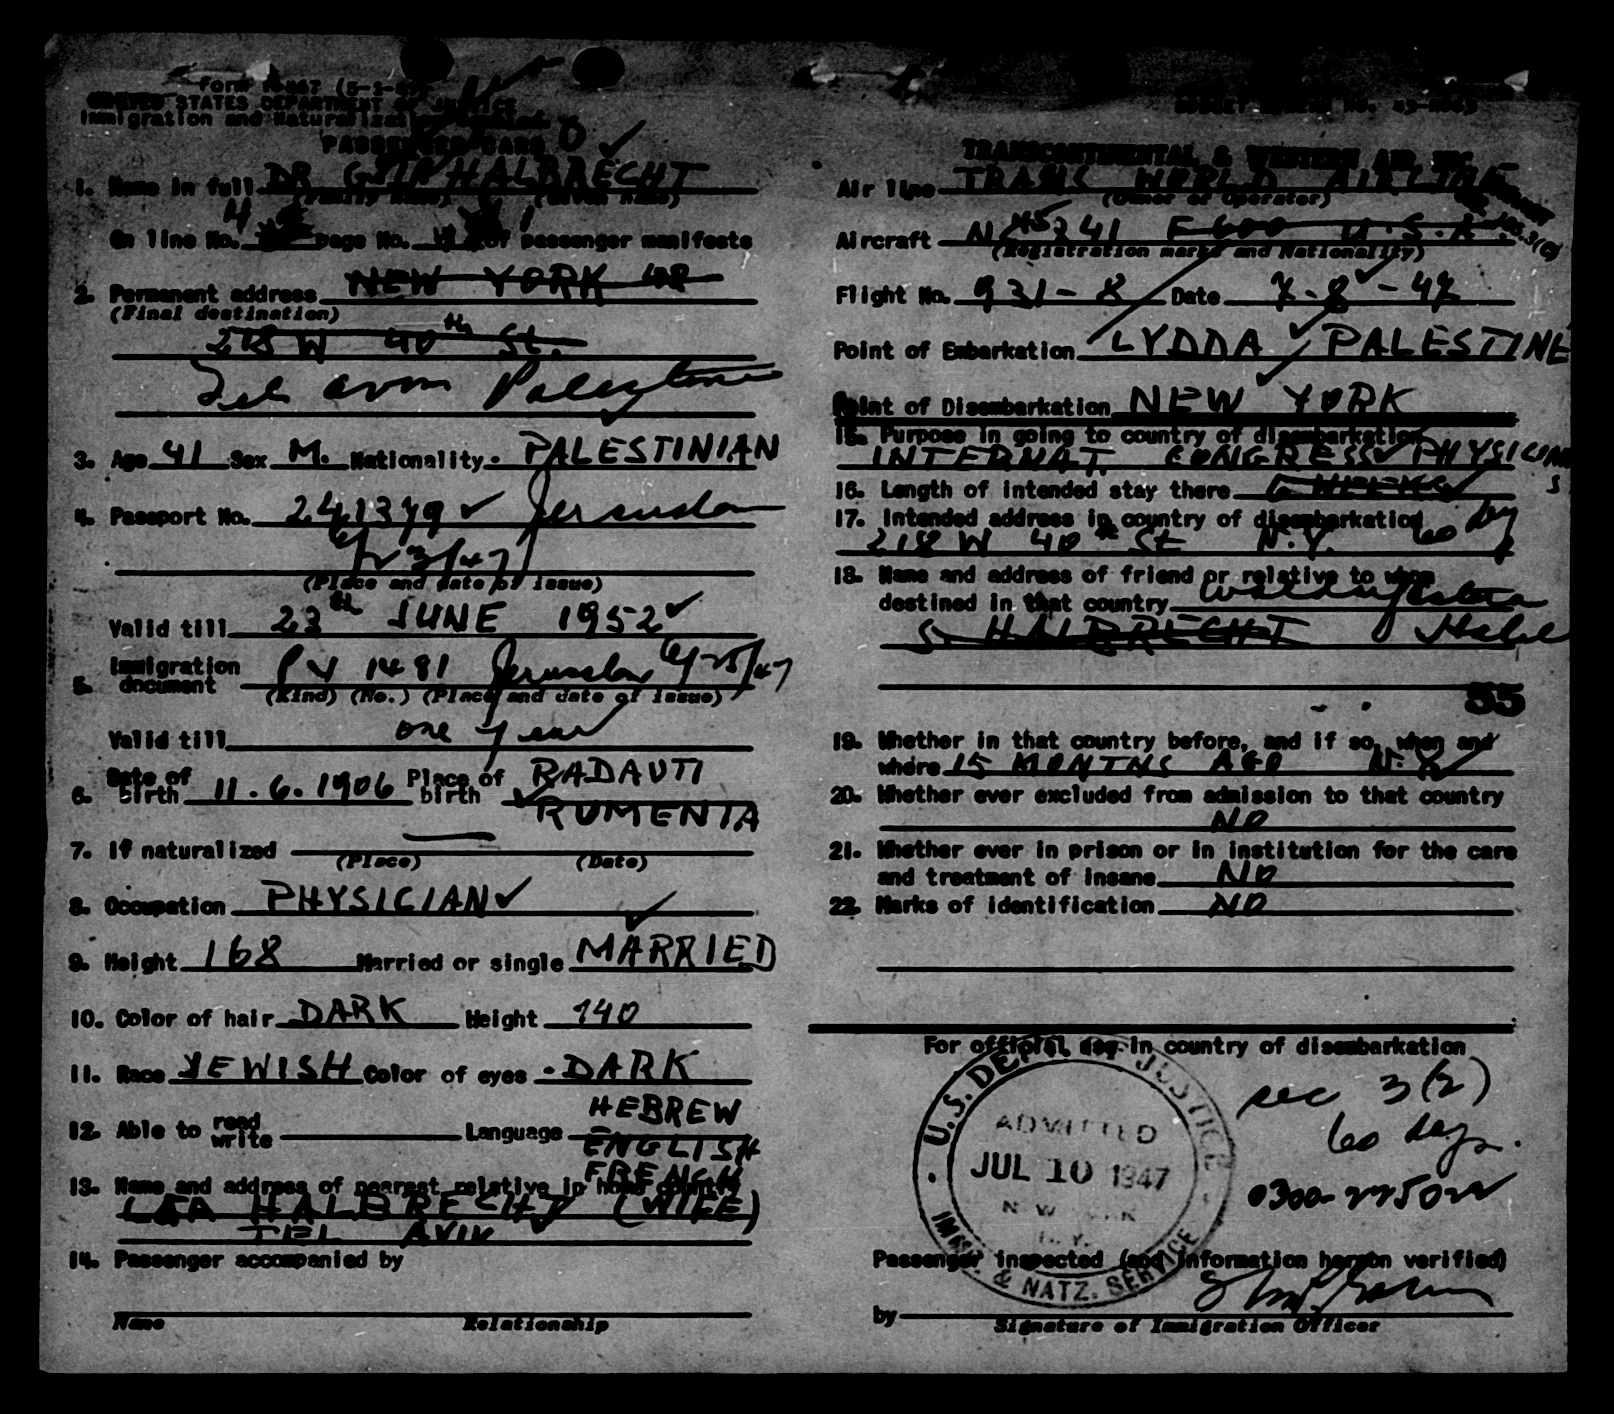 STATES DEPARTMENT OF JUSTICE
Immigration and Naturalization
PASSENGER CARD
1. Name in full DR HALBRECHT
(Family name) (Given name)
On line No. 4 page No. of passenger manifests
2. Permanent address NEW YORK
(Final destination)
218 W 40th St.
Tel Aviv Palestine
3. Age 41 Sex M. Nationality. PALESTINIAN
4. Passport No. 241379 Jerusalem
6/23/47
(Place and date of issue)
Valid till 23 JUNE 1952
5. Immigration document PV 1481 Jerusalem 6/25/47
(Kind) (No.) (Place and date of issue)
Valid till one year
6. Date of birth 11.6.1906 Place of birth RADAUTI
RUMENIA
7. If naturalized —
(Place) (Date)
8. Occupation PHYSICIAN
9. Height 168 Married or single MARRIED
10. Color of hair DARK Weight 140
11. Race JEWISH Color of eyes DARK
12. Able to read write Language HEBREW
ENGLISH
FRENCH
13. Name and address of nearest relative in home country
LEA HALBRECHT (WIFE)
TEL AVIV
14. Passenger accompanied by
Name Relationship
TRANSCONTINENTAL & WESTERN AIR INC
Air line TRANS WORLD AIRLINE
(Owner or Operator)
Aircraft U.S.A.
(Registration marks and Nationality)
Flight No. 931-8 Date 7-8-47
Point of Embarkation LYDDA PALESTINE
Point of Disembarkation NEW YORK
15. Purpose in going to country of disembarkation
INTERNAT. CONGRESS PHYSICIANS
16. Length of intended stay there 6 WEEKS
17. Intended address in country of disembarkation 60 day
218 W 40 St N.Y.
18. Name and address of friend or relative to whom
destined in that country Waldorf Astoria
S. HALBRECHT Hotel
55
19. Whether in that country before, and if so, when and
where 15 MONTHS AGO N.Y.
20. Whether ever excluded from admission to that country
NO
21. Whether ever in prison or in institution for the care
and treatment of insane NO
22. Marks of identification NO
For official use in country of disembarkation
U.S. DEPT. OF JUSTICE
ADMITTED
JUL 10 1947
NEW YORK
N.Y.
IMM. & NATZ. SERVICE
sec 3(2)
60 days.
Passenger inspected (and information hereon verified)
by
Signature of Immigration Officer